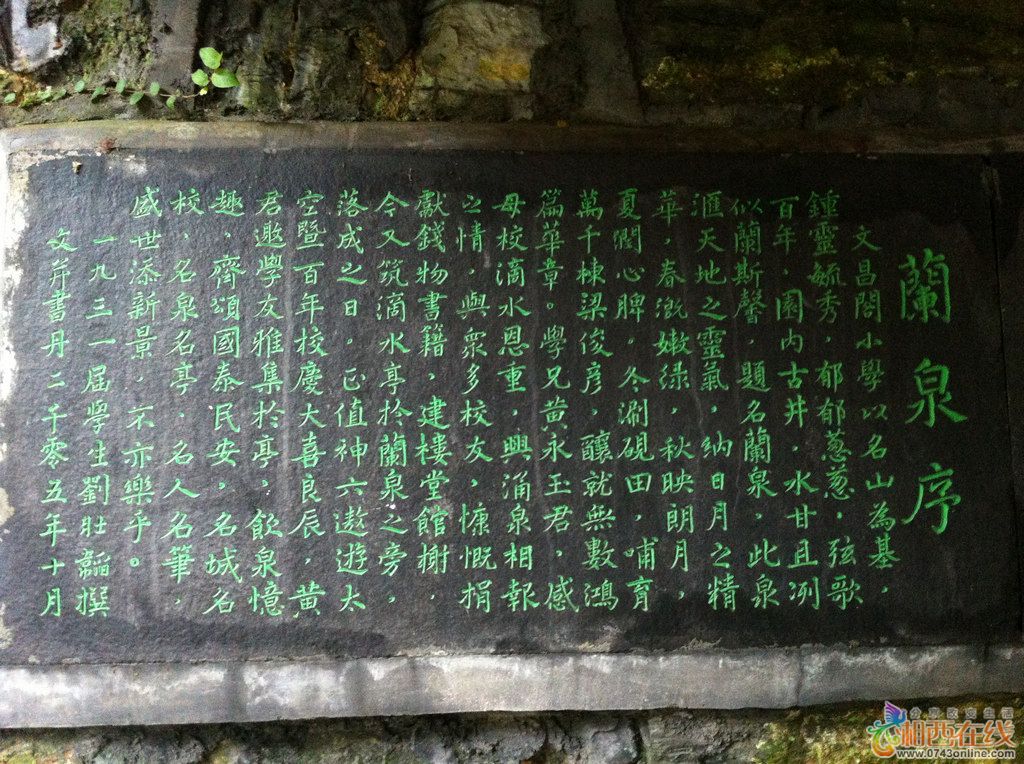 蘭泉序
文昌閣小學以名山為基，
鍾靈毓秀，郁郁蔥蔥，弦歌
百年，園內古井，水甘且冽
似蘭斯馨，題名蘭泉，此泉
滙天地之靈氣，納日月之精
華，春溉嫩綠，秋映朗月，
夏閣心脾，冬涮硯田，哺育
萬千棟梁俊彥，釀就無數鴻
篇華章。學兄黃永玉君，感
母校滴水恩重，興涌泉相報
之情，與眾多校友，慷慨捐
獻錢物書籍，建樓堂館榭，
今又筑滴水亭於蘭泉之旁，
落成之日，正值神六遨遊太
空暨百年校慶大喜良辰，黃
君邀學友雅集於亭，飲泉憶
趣，齊頌國泰民安，名城名
校，名泉名亭，名人名筆，
盛世添新景，不亦樂乎。
一九三一屆學生劉壯韜撰
文并書丹二千零五年十月
分享改变生活
湘西在线
www.0743online.com